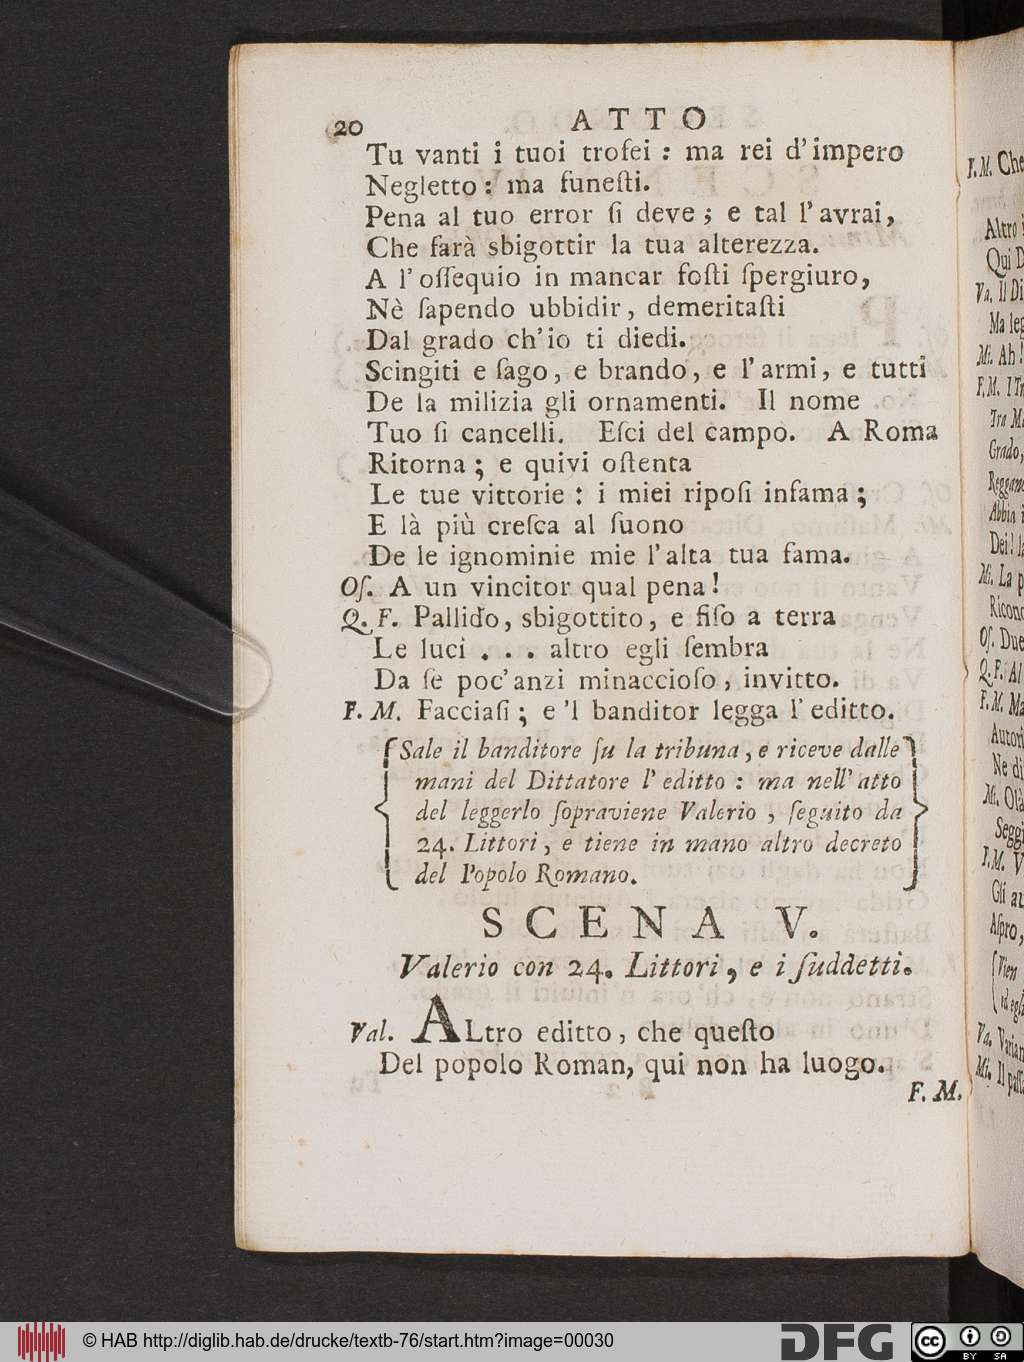 20 ATTO
Tu vanti i tuoi trofei : ma rei d'impero
Negletto : ma funeſti.
Pena al tuo error ſi deve ; e tal l'avrai,
Che farà sbigottir la tua alterezza.
A l'oſſequio in mancar foſti ſpergiuro,
Nè ſapendo ubbidir, demeritaſti
Dal grado ch'io ti diedi.
Scingiti e ſago, e brando, e l'armi, e tutti
De la milizia gli ornamenti. Il nome
Tuo ſi cancelli. Eſci del campo. A Roma
Ritorna ; e quivi oſtenta
Le tue vittorie : i miei ripoſi infama ;
E là più creſca al ſuono
De le ignominie mie l'alta tua fama.
Oſ. A un vincitor qual pena !
Q. F. Pallido, sbigottito, e fiſo a terra
Le luci . . . altro egli ſembra
Da ſe poc'anzi minaccioſo, invitto.
F. M. Facciaſi ; e 'l banditor legga l'editto.
Sale il banditore ſu la tribuna, e riceve dalle
mani del Dittatore l'editto : ma nell'atto
del leggerlo ſopraviene Valerio, ſeguito da
24. Littori, e tiene in mano altro decreto
del Popolo Romano.
SCENA V.
Valerio con 24. Littori, e i ſuddetti.
Val. ALtro editto, che queſto
Del popolo Roman, qui non ha luogo.
F. M.
F. M. Che
Altro
Qui D
Va. Il Di
Ma leg
Mi. Ah!
F. M. I Tr
Tra M
Grado,
Reggano
Abbia i
Dei! l
Mi. La p
Ricono
Oſ. Due
Q. F. Al
F. M. Ma
Autori
Ne di
Mi. Olà
Seggi
F. M. V
Gli
Aſpro,
Vien
ed egli
Va. Varian
Mi. Il
© HAB http://diglib.hab.de/drucke/textb-76/start.htm?image=00030
DFG
cc BY SA